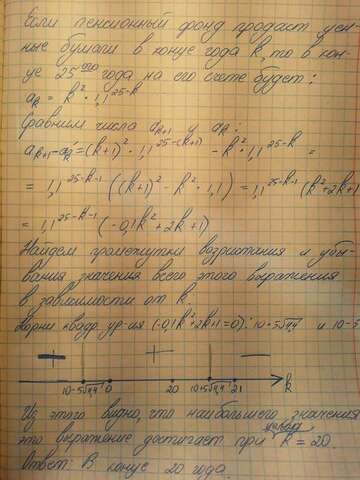 Если пенсионный фонд продаст цен-
ные бумаги в конце года k, то в кон-
це 25ого года на его счете будет:
aₖ = k² · 1,1²⁵⁻ᵏ
Сравним числа aₖ₊₁ и aₖ:
aₖ₊₁-aₖ=(k+1)² · 1,1²⁵⁻⁽ᵏ⁺¹⁾ - k² · 1,1²⁵⁻ᵏ =
= 1,1²⁵⁻ᵏ⁻¹ ((k+1)² - k² · 1,1) = 1,1²⁵⁻ᵏ⁻¹ (k²+2k+1
= 1,1²⁵⁻ᵏ⁻¹ (-0,1k²+2k+1)
Найдем промежутки возрастания и убы-
вания значения всего этого выражения
в зависимости от k.
Корни квадр. ур-ия (-0,1k²+2k+1=0): 10+5√4,4 и 10-5
— + —
10-5√4,4 0 20 10+5√4,4 21 k
Из этого видно, что наибольшего значения
это выражение достигает при k = 20.
Ответ: В конце 20 года.